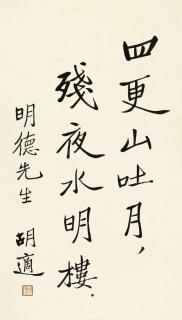 四更山吐月，
殘夜水明樓．
明德先生
胡適